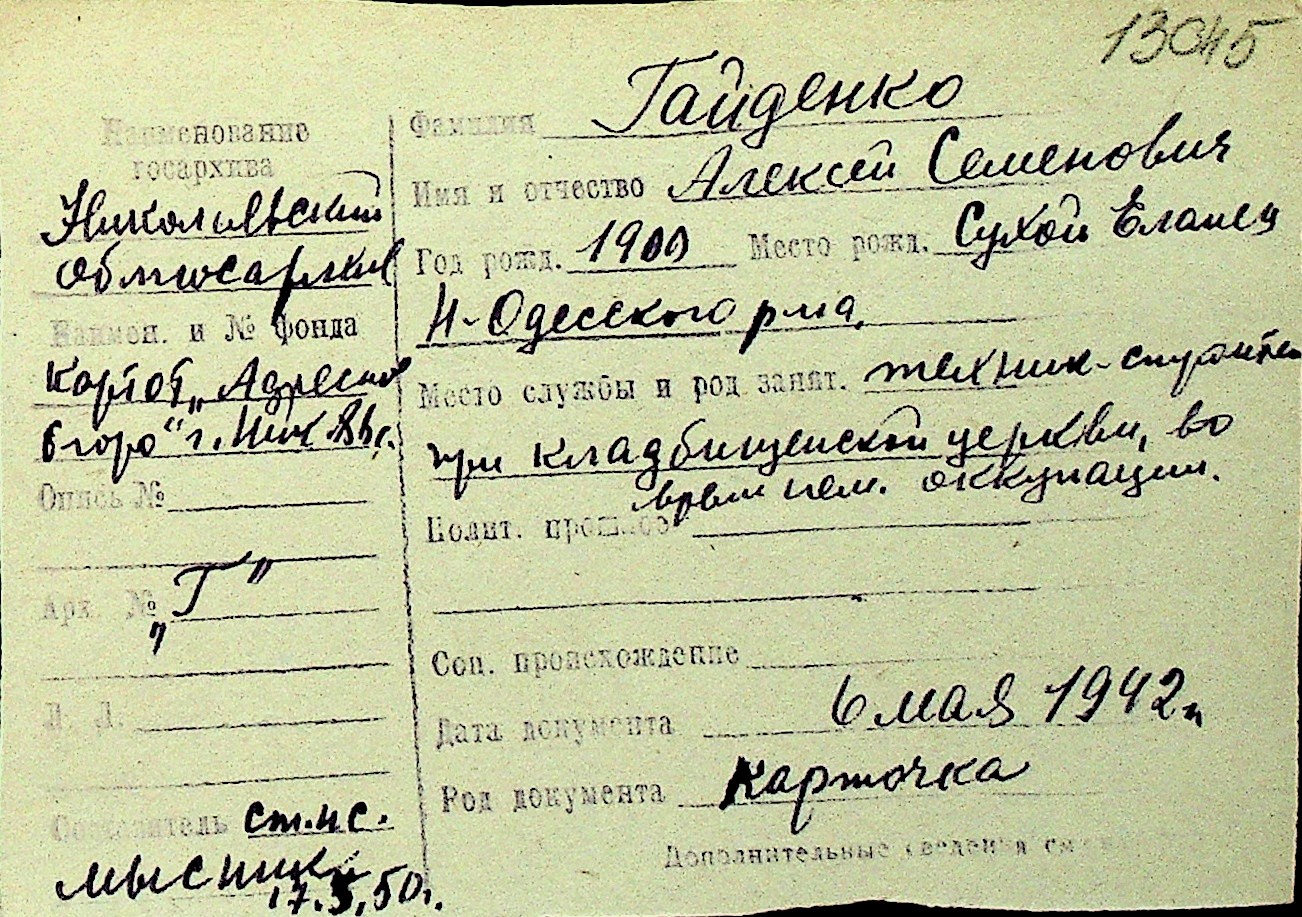 13045
Наименование
госархива
Николаевский
облгосархив
Наимен. и № фонда
Картот. „Адресное
бюро“ г. Ник.
Опись №
Арх. № „Г“
Л. Л.
Составитель ст. н с.
17.5.50г.
Фамилия Гайденко
Имя и отчество Алексей Семенович
Год рожд. 1900 Место рожд. Сухой Еланец
Н-Одесского р-на.
Место службы и род занят. техник-строитель
при кладбищенской церкви, во
время нем. оккупации.
Полит. прошлое
Соц. происхождение
Дата документа 6 мая 1942г.
Род документа Карточка
Дополнительные сведения см.